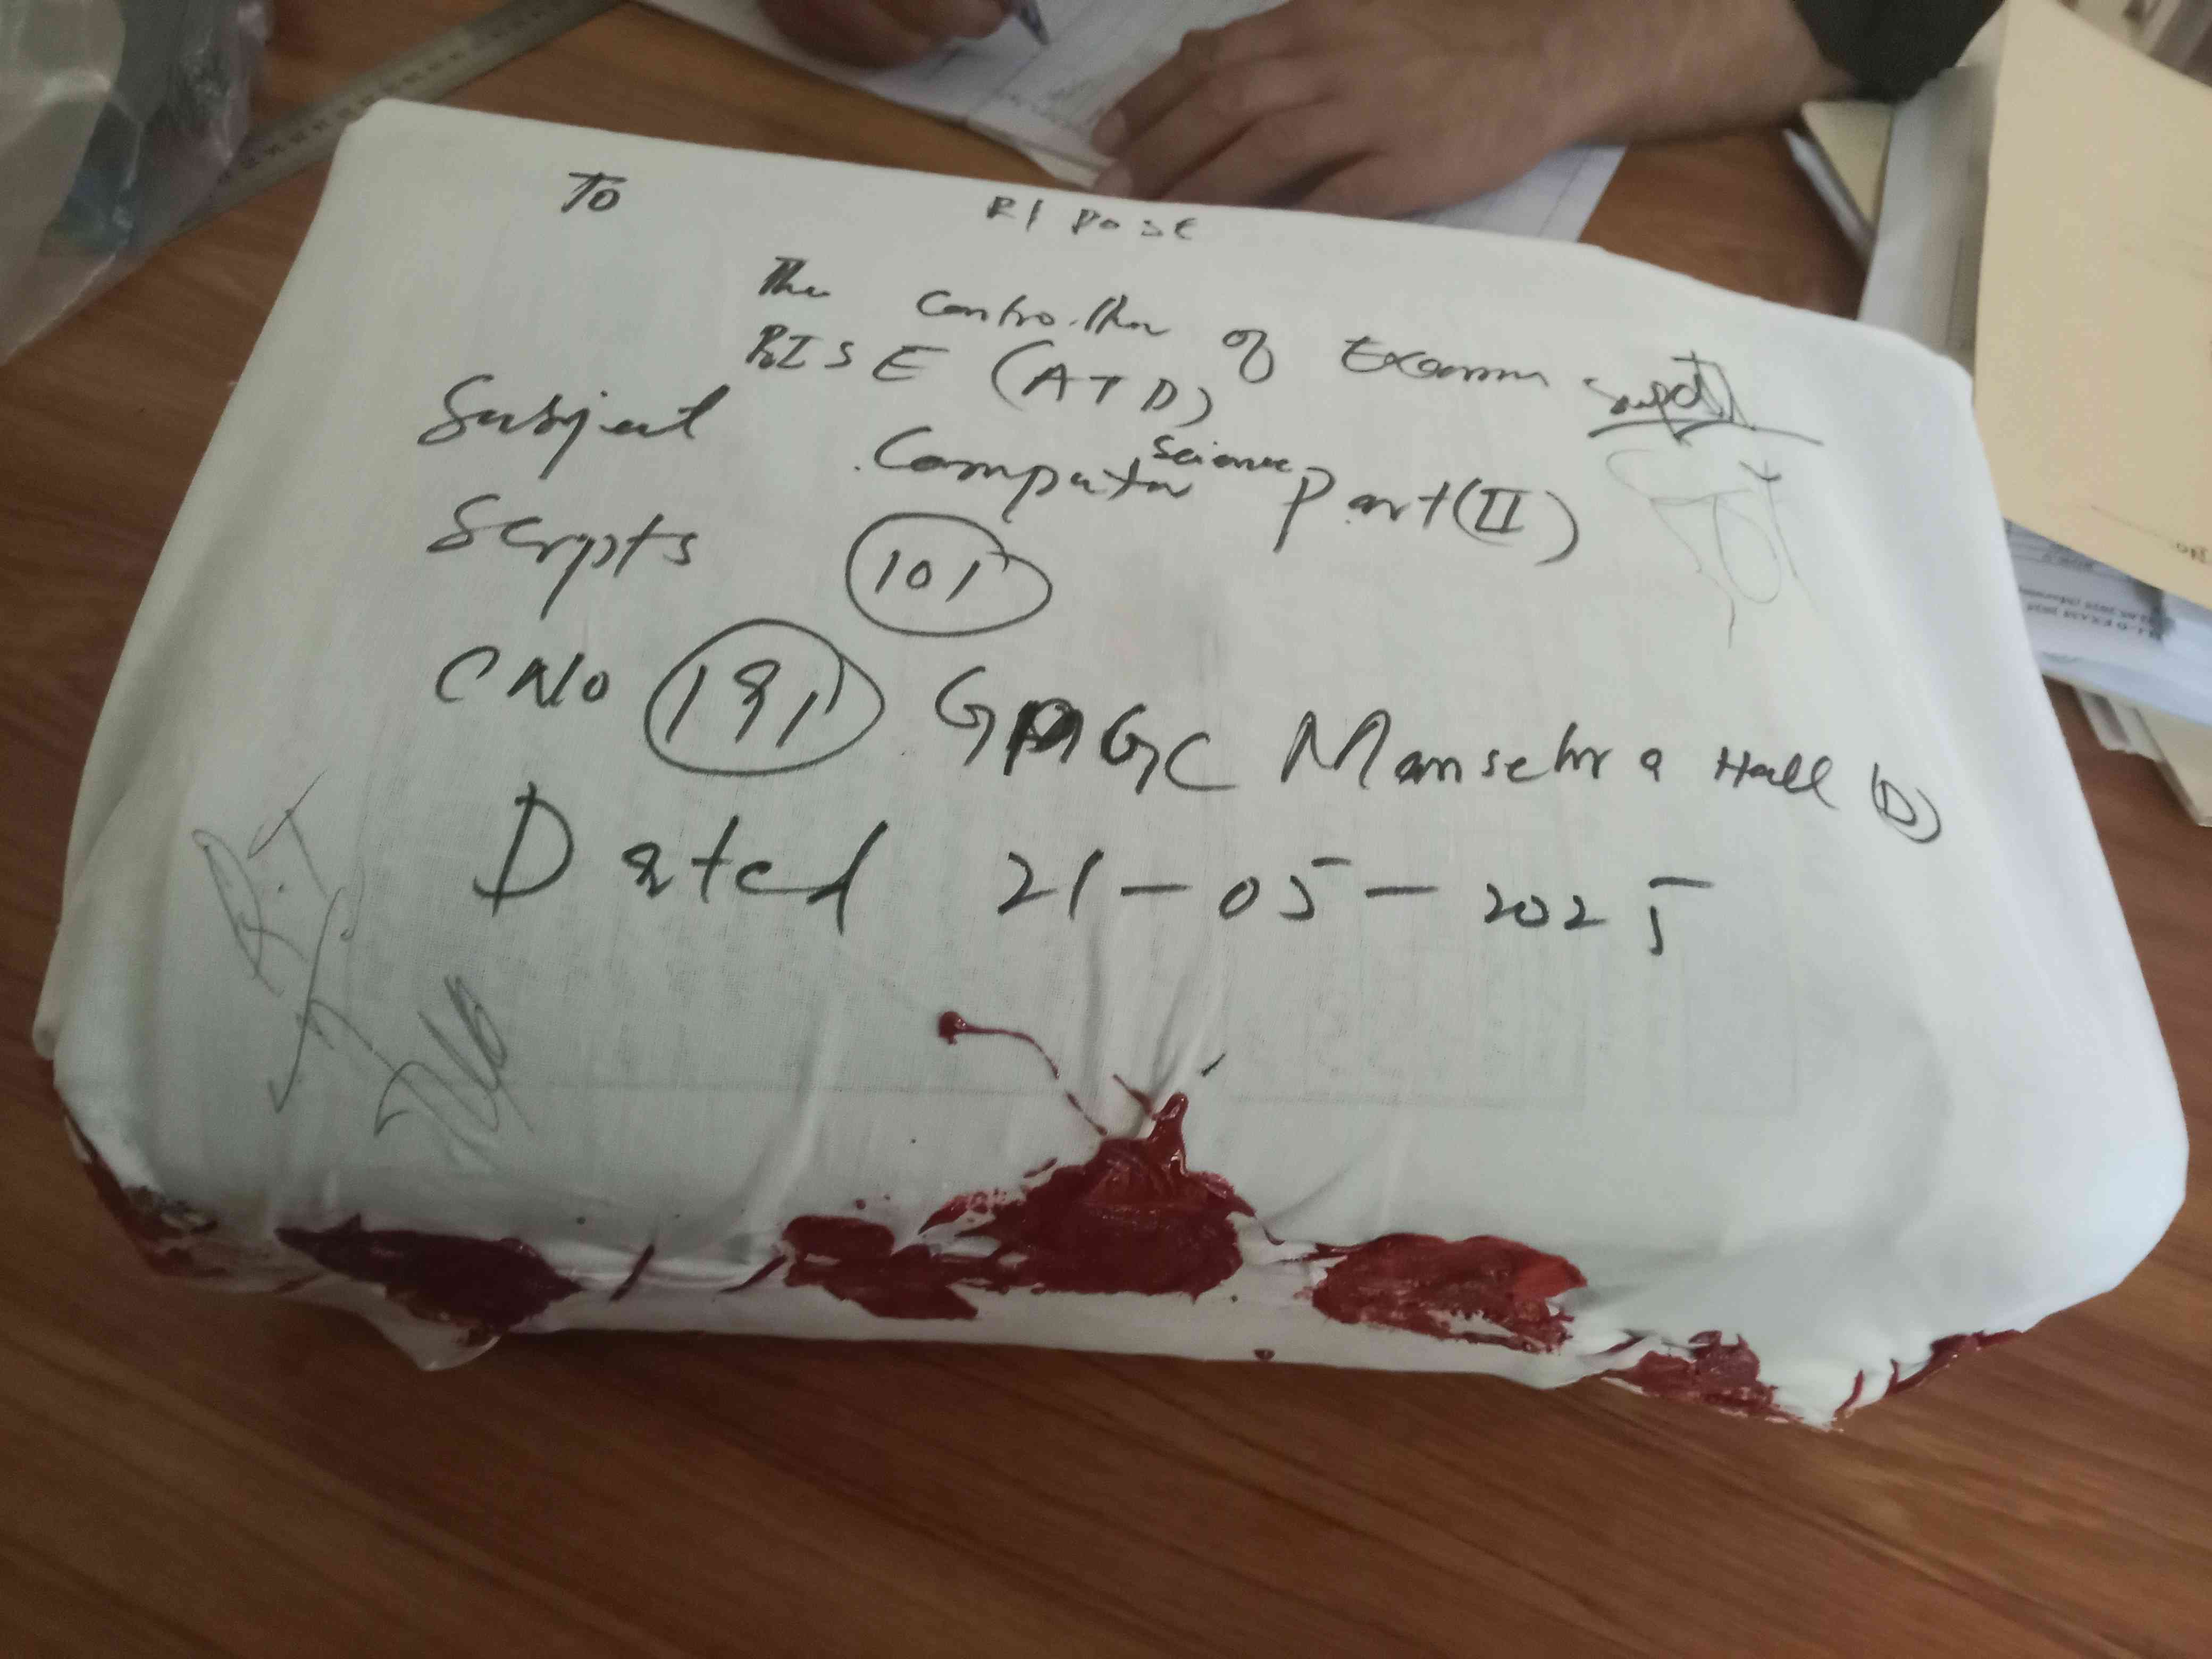 To
The Controller of Exam
BISE (ATD)
Supdt
Subject Computer Science Part (II)
Scripts 101
C No 191 GPGC Mansehra Hall (D)
Dated 21-05-2025